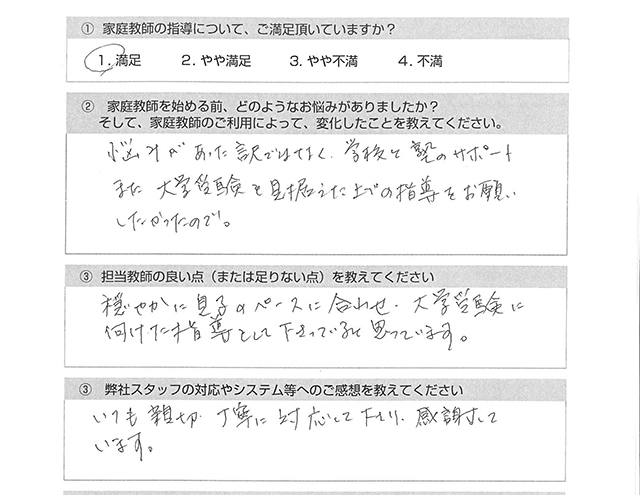 ① 家庭教師の指導について、ご満足頂いていますか？
1. 満足 2. やや満足 3. やや不満 4. 不満
② 家庭教師を始める前、どのようなお悩みがありましたか？
そして、家庭教師のご利用によって、変化したことを教えてください。
悩みがあった訳ではなく、学校と塾のサポート
また 大学受験を見据えた上での指導をお願い
したかったので。
③ 担当教師の良い点（または足りない点）を教えてください
穏やかに息子のペースに合わせ、大学受験に
向けた指導をして下さっていると思っています。
③ 弊社スタッフの対応やシステム等へのご感想を教えてください
いつも親切、丁寧に対応して下さり、感謝して
います。